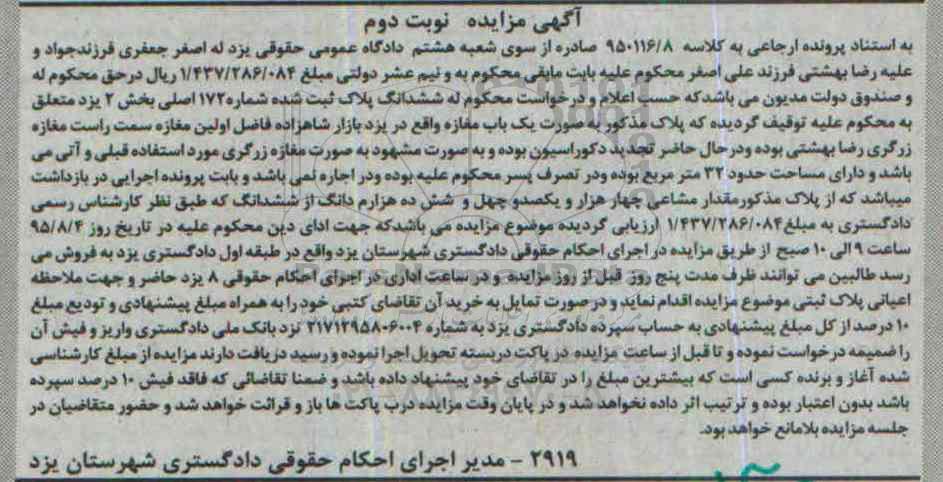 آگهی مزایده نوبت دوم
به استناد پرونده ارجاعی به کلاسه ۹۵۰۱۱۶/۸ صادره از سوی شعبه هشتم دادگاه عمومی حقوقی یزد له اصغر جعفری فرزندجواد و
علیه رضا بهشتی فرزند علی اصغر محکوم علیه بابت مابقی محکوم به و نیم عشر دولتی مبلغ ۱/۴۳۷/۲۸۶/۰۸۴ ریال درحق محکوم له
و صندوق دولت مدیون می باشدکه حسب اعلام و درخواست محکوم له ششدانگ پلاک ثبت شده شماره۱۷۲ اصلی بخش ۲ یزد متعلق
به محکوم علیه توقیف گردیده که پلاک مذکور به صورت یک باب مغازه واقع در یزد بازار شاهزاده فاضل اولین مغازه سمت راست مغازه
زرگری رضا بهشتی بوده ودرحال حاضر تجدید دکوراسیون بوده و به صورت مشهود به صورت مغازه زرگری مورد استفاده قبلی و آتی می
باشد و دارای مساحت حدود ۳۲ متر مربع بوده ودر تصرف پسر محکوم علیه بوده ودر اجاره نمی باشد و بابت پرونده اجرایی در بازداشت
میباشد که از پلاک مذکورمقدار مشاعی چهار هزار و یکصدو چهل و شش ده هزارم دانگ از ششدانگ که طبق نظر کارشناس رسمی
دادگستری به مبلغ۱/۴۳۷/۲۸۶/۰۸۴ ارزیابی گردیده موضوع مزایده می باشدکه جهت ادای دین محکوم علیه در تاریخ روز ۹۵/۸/۴
ساعت ۹ الی ۱۰ صبح از طریق مزایده در اجرای احکام حقوقی دادگستری شهرستان یزد واقع در طبقه اول دادگستری یزد به فروش می
رسد طالبین می توانند ظرف مدت پنج روز قبل از روز مزایده و در ساعت اداری در اجرای احکام حقوقی ۸ یزد حاضر و جهت ملاحظه
اعیانی پلاک ثبتی موضوع مزایده اقدام نماید و در صورت تمایل به خرید آن تقاضای کتبی خود را به همراه مبلغ پیشنهادی و تودیع مبلغ
۱۰ درصد از کل مبلغ پیشنهادی به حساب سپرده دادگستری یزد به شماره ۲۱۷۱۲۹۵۸۰۶۰۰۴ نزد بانک ملی دادگستری واریز و فیش آن
را ضمیمه درخواست نموده و تا قبل از ساعت مزایده در پاکت دربسته تحویل اجرا نموده و رسید دریافت دارند مزایده از مبلغ کارشناسی
شده آغاز و برنده کسی است که بیشترین مبلغ را در تقاضای خود پیشنهاد داده باشد و ضمنا تقاضائی که فاقد فیش ۱۰ درصد سپرده
باشد بدون اعتبار بوده و ترتیب اثر داده نخواهد شد و در پایان وقت مزایده درب پاکت ها باز و قرائت خواهد شد و حضور متقاضیان در
جلسه مزایده بلامانع خواهد بود.
۲۹۱۹ - مدیر اجرای احکام حقوقی دادگستری شهرستان یزد